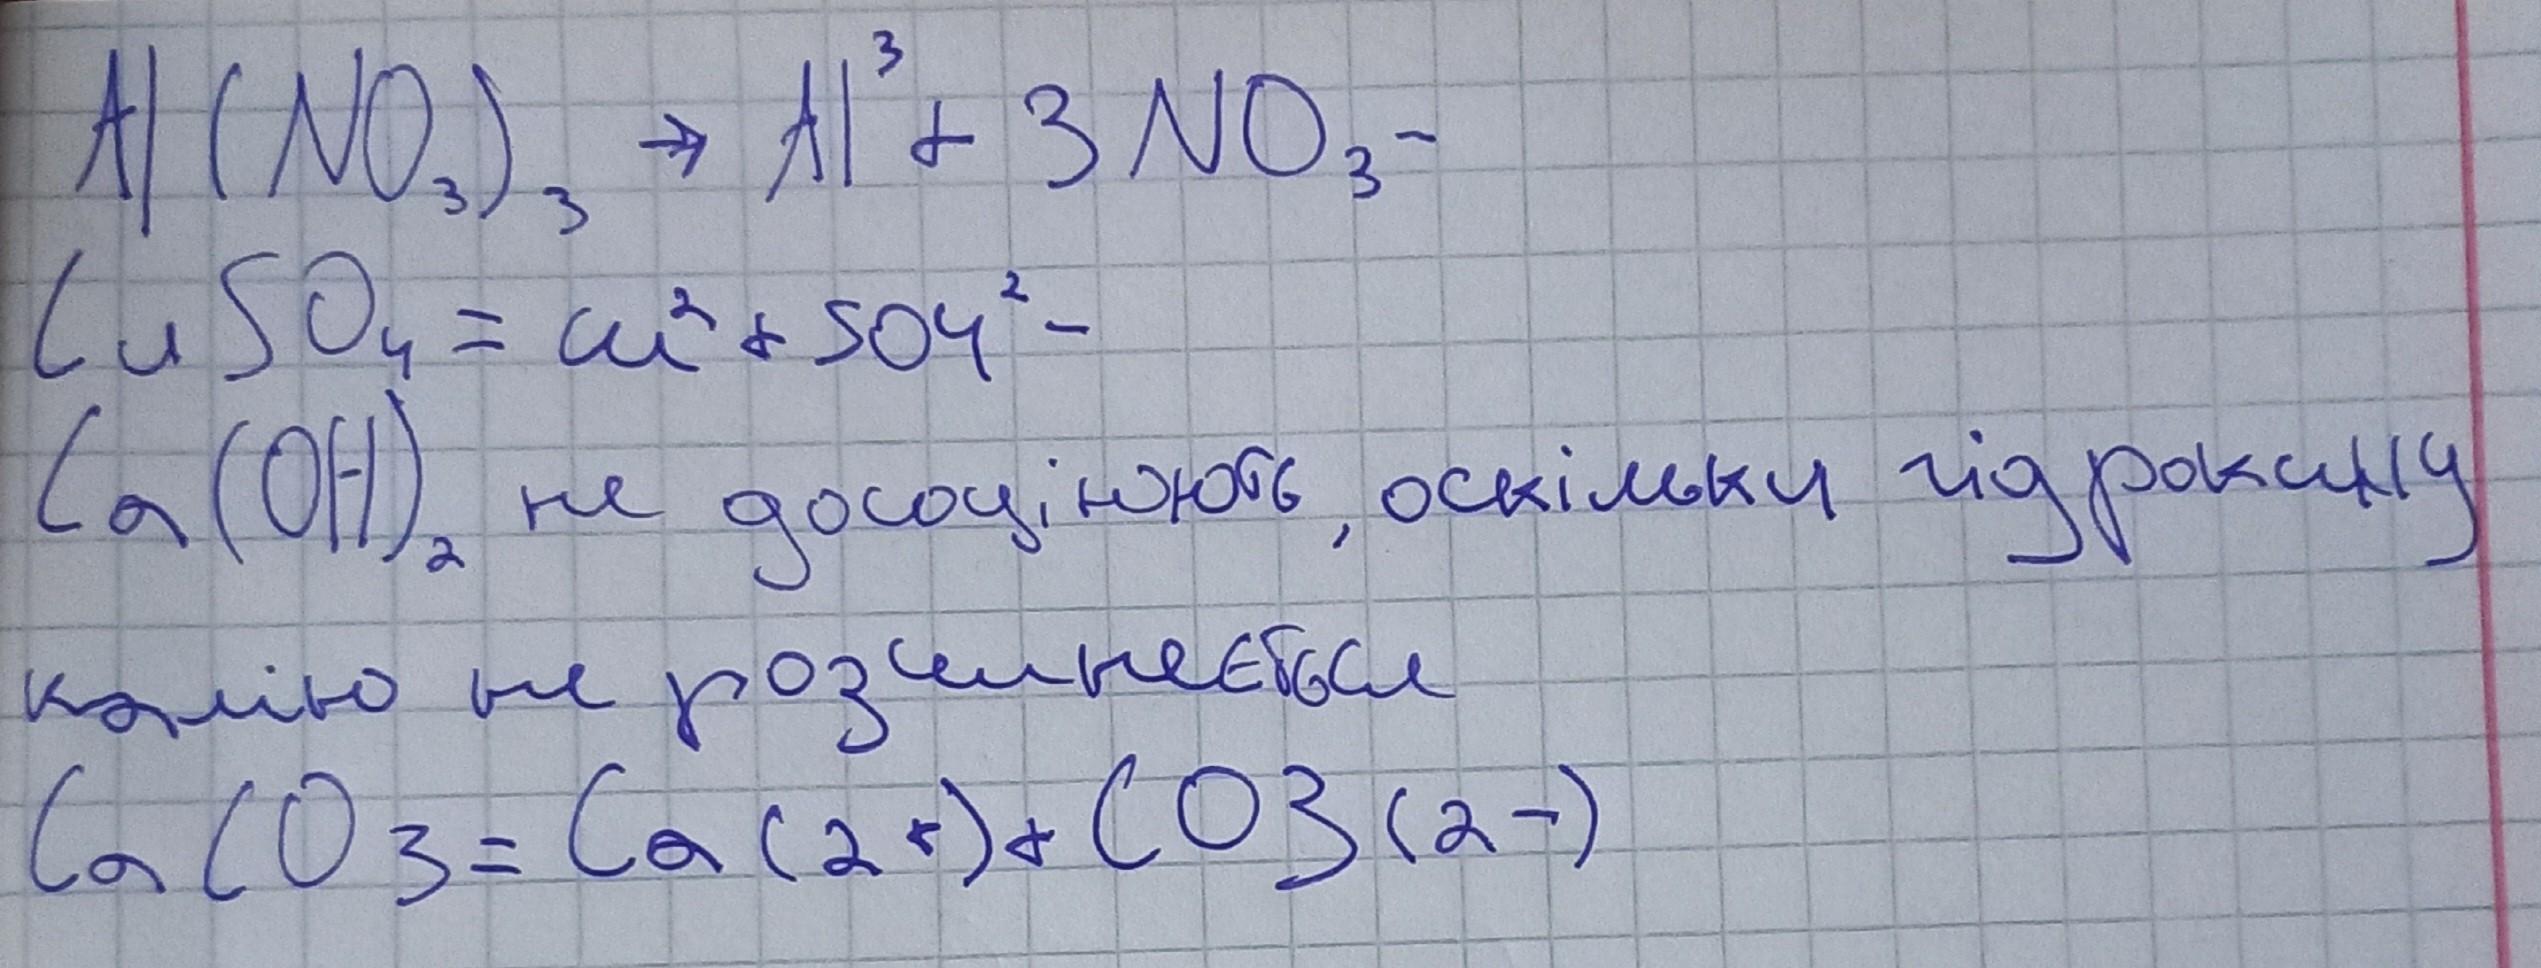 Al(NO₃)₃ → Al³ + 3NO₃-
CuSO₄ = cu² + SO4²-
Ca(OH)₂ не досоціюють, оскільки гідроксиду
каліію не розчинеється
CaCO3 = Ca(2+) + CO3(2-)